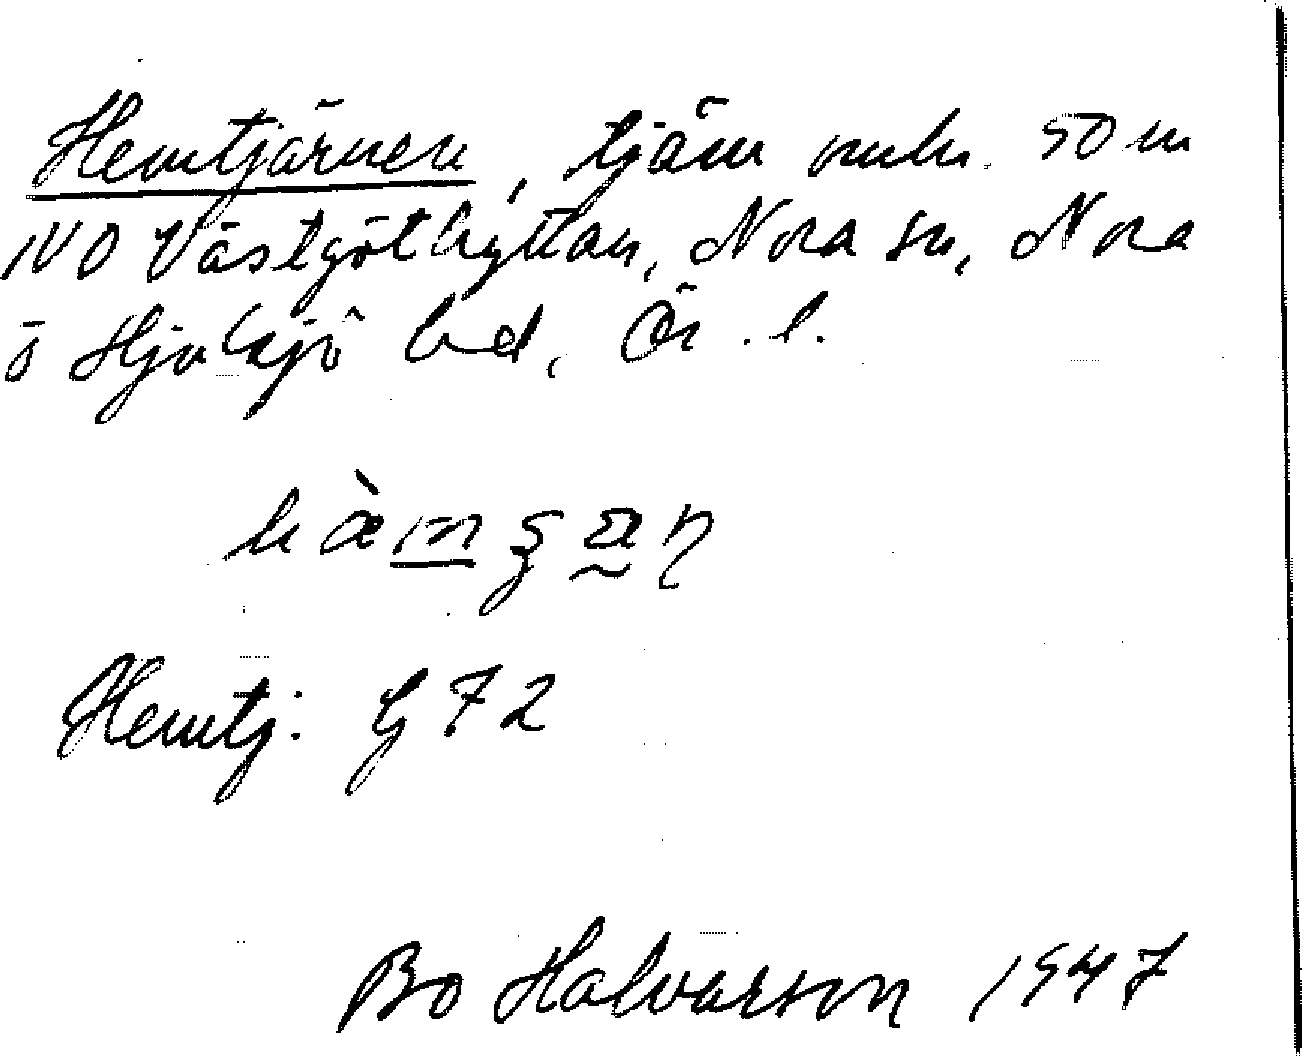 Hemtjärnen, tjärn omkr. 50 m
NO Västgöthyttan, Nora sn, Nora
o Hjulsjö bd, Ör. l.
Hemtj. G 72
Bo Halvarson 1947